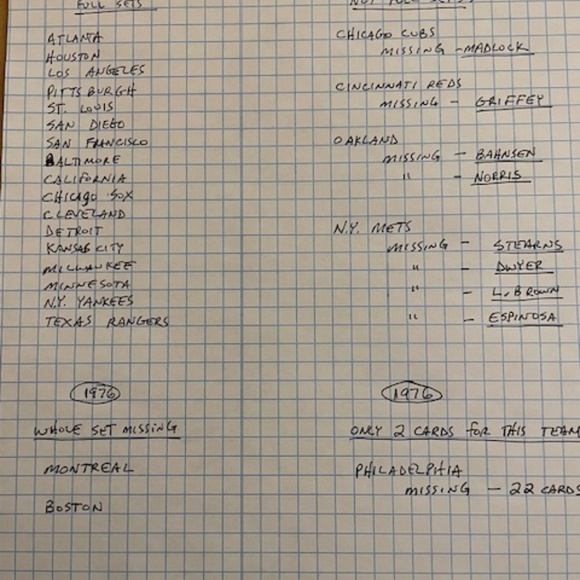 FULL SETS
ATLANTA
HOUSTON
LOS ANGELES
PITTSBURGH
ST. LOUIS
SAN DIEGO
SAN FRANCISCO
BALTIMORE
CALIFORNIA
CHICAGO SOX
CLEVELAND
DETROIT
KANSAS CITY
MILWAUKEE
MINNESOTA
N.Y. YANKEES
TEXAS RANGERS
NOT FULL SETS
CHICAGO CUBS
MISSING - MADLOCK
CINCINNATI REDS
MISSING - GRIFFEY
OAKLAND
MISSING - BAHNSEN
" - NORRIS
N.Y. METS
MISSING - STEARNS
" - DWYER
" - L. BROWN
" - ESPINOSA
1976
WHOLE SET MISSING
MONTREAL
BOSTON
1976
ONLY 2 CARDS FOR THIS TEAM
PHILADELPHIA
MISSING - 22 CARDS